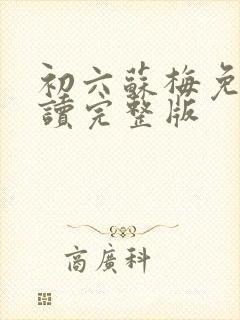 初六蘇梅免
讀完整版
商廣科